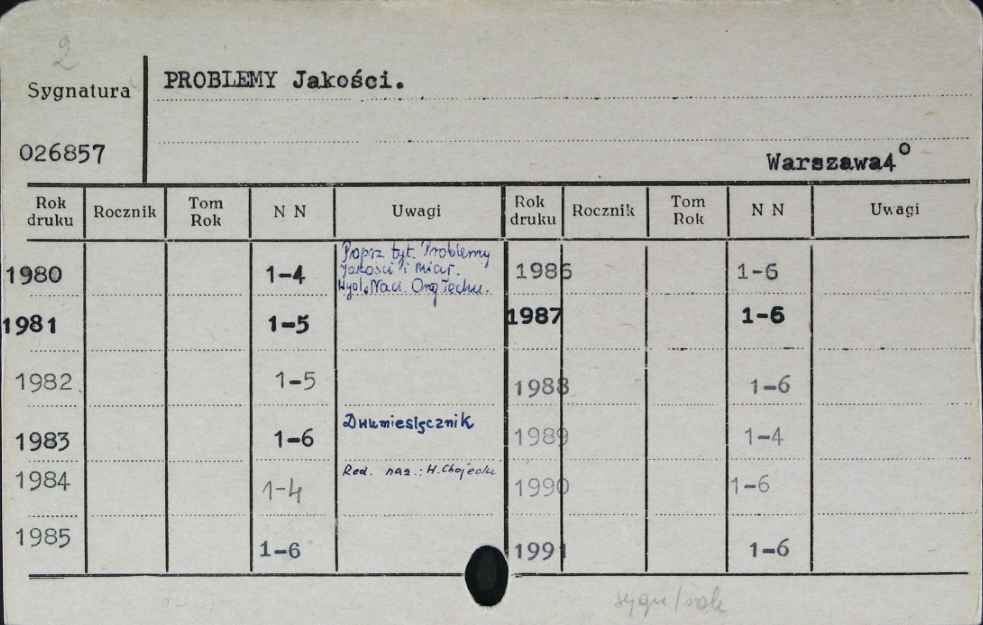 2
Sygnatura
PROBLEMY Jakości.
026857
Warszawa4°
Rok druku Rocznik Tom Rok N N Uwagi Rok druku Rocznik Tom Rok N N Uwagi
1980 1-4 Poprz. tyt. Problemy 1986 1-6
Jakości i Miar.
Wyd. Nacz. Org. Techn.
1981 1-5 1987 1-6
1982 1-5 1988 1-6
1983 1-6 Dwumiesięcznik 1989 1-4
1984 1-4 Red. nacz.: H. Chojecki 1990 1-6
1985 1-6 1991 1-6
sygn/rok